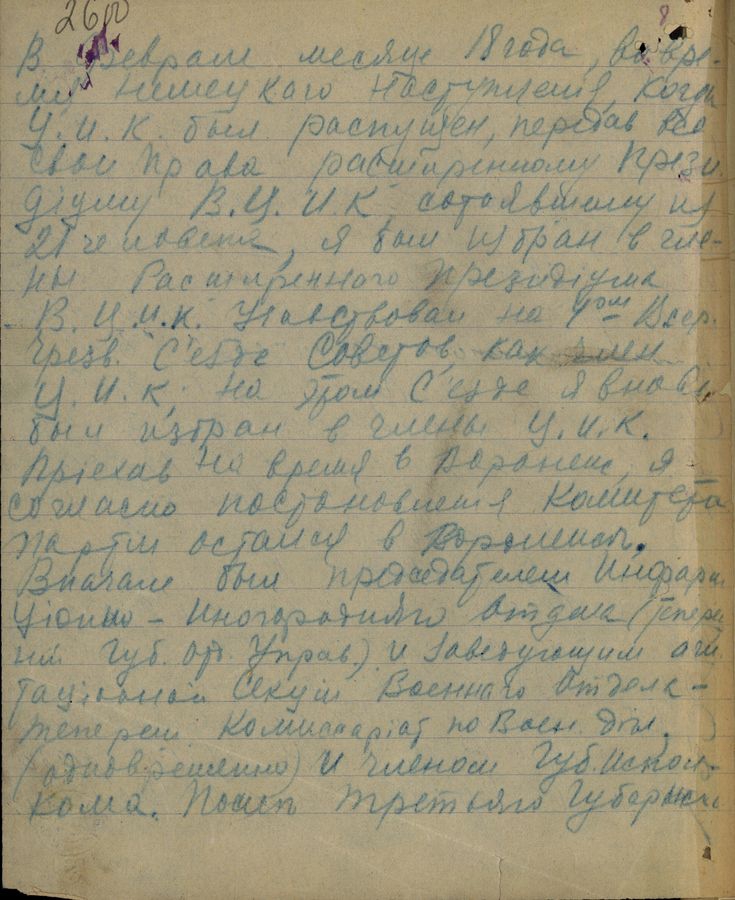 2600
8
В Феврале месяце 18 года, во вре-
мя немецкого наступления, когда
Ц.И.К. был распущен, передав все
свои права расширенному Прези-
діуму В.Ц.И.К, состоявшему из
21 человека, я был избран в чле-
ны Расширенного Президіума
В.Ц.И.К. Участвовал на 4ом Всер.
Чрезв. С'езде Советов, как член
Ц.И.К, на этом С'езде я вновь
был избран в члены Ц.И.К.
Пріехав на время в Воронеж, я
согласно постановления Комитета
партіи остался в Воронеже.
Вначале был председателем Информа
ціонно-Иногороднего отдела (тепере
ній Губ. отд. Управ) и Заведующим аги
таціонной Секціи Военнаго отдела -
теперешн Комиссаріат по Воен. дел.
(одновременно) и членом Губ.Испол-
кома. После третьяго Губернск